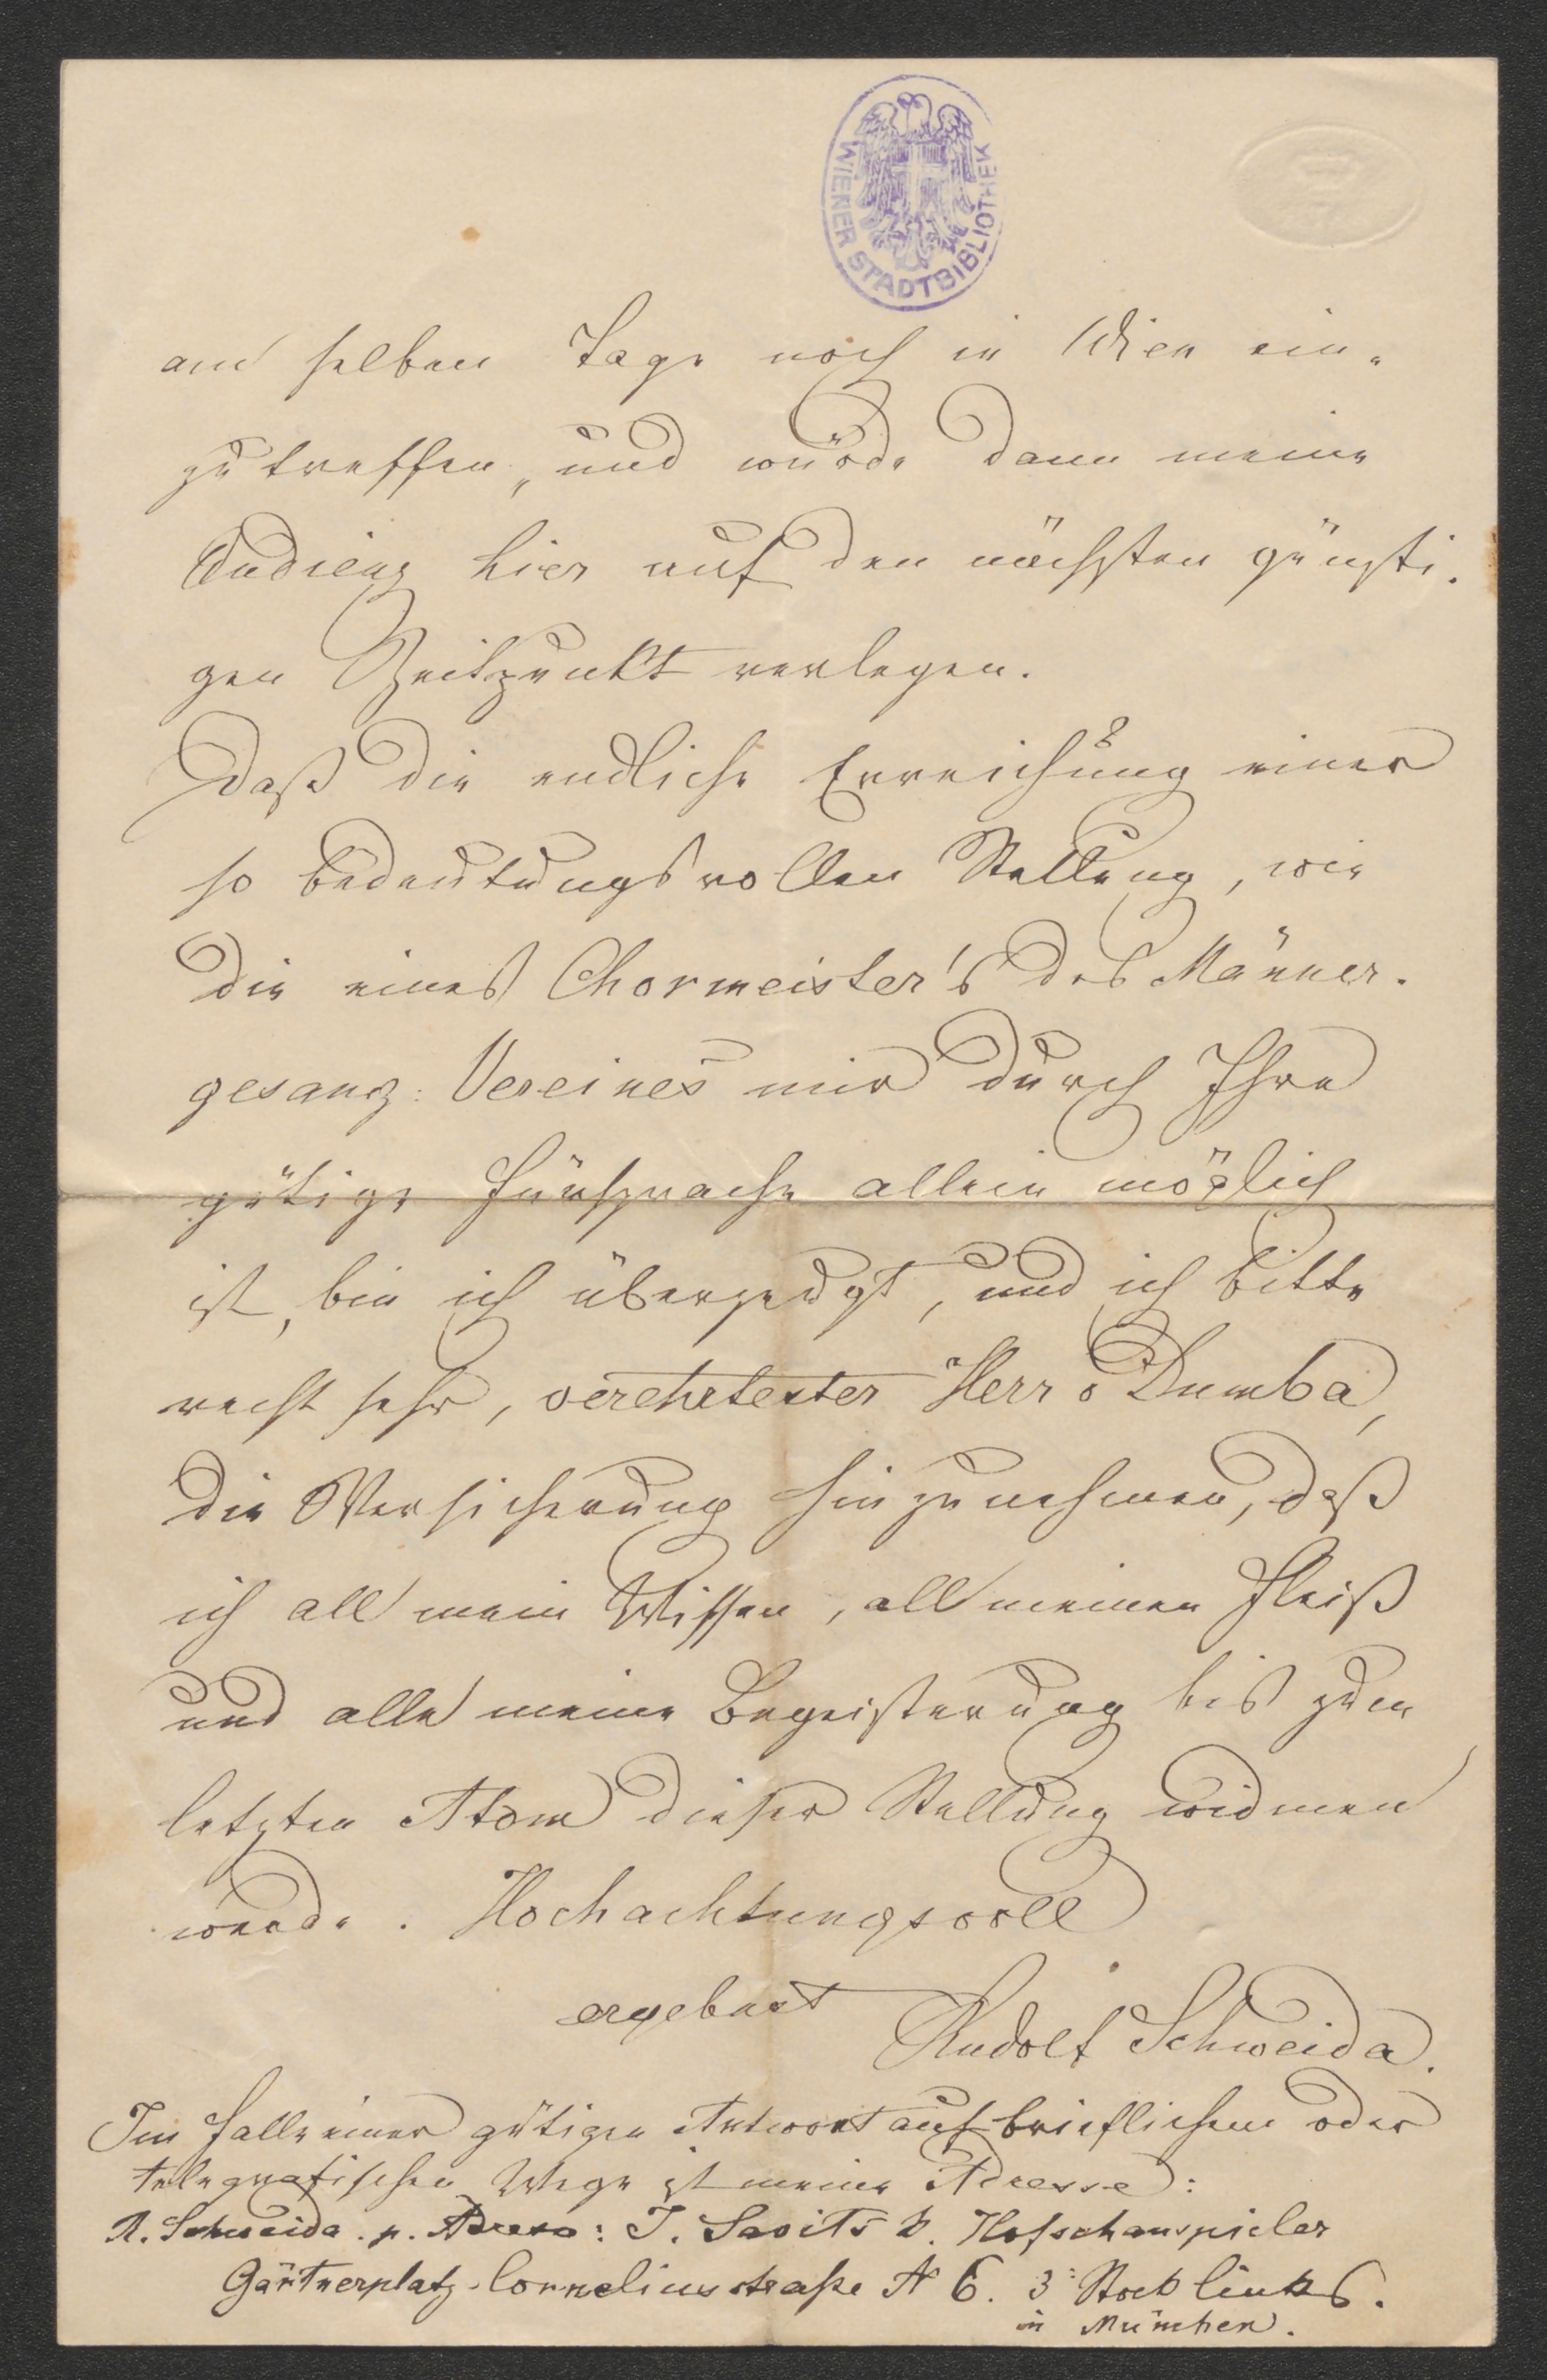 WIENER STADTBIBLIOTHEK
am selben Tage noch in Wien ein-
zutreffen, und würde dann meine
Audienz hier auf den nächsten günsti-
gen Zeitpunkt verlegen.
Daß die endliche Erreichung einer
so bedeutungsvollen Stellung, wie
die eines Chormeister's des Männer-
gesang-Vereines mir durch Ihre
gütige Fürsprache allein möglich
ist, bin ich überzeugt, und ich bitte
recht sehr, verehrtester Herr v Dumba,
die Versicherung hinzunehmen, daß
ich all mein Wissen, all meinen Fleiß
und alle meine Begeisterung bis zum
letzten Atom dieser Stellung widmen
werde. Hochachtungsvoll
ergebenst
Rudolf Schweida.
Im Falle einer gütigen Antwort auf brieflichem oder
telegrafischen Wege ist meine Adresse:
R. Schweida. p. Adress: J. Savits k. Hofschauspieler
Gärtnerplatz-Corneliusstraße N 6. 3: Stock links.
in München.